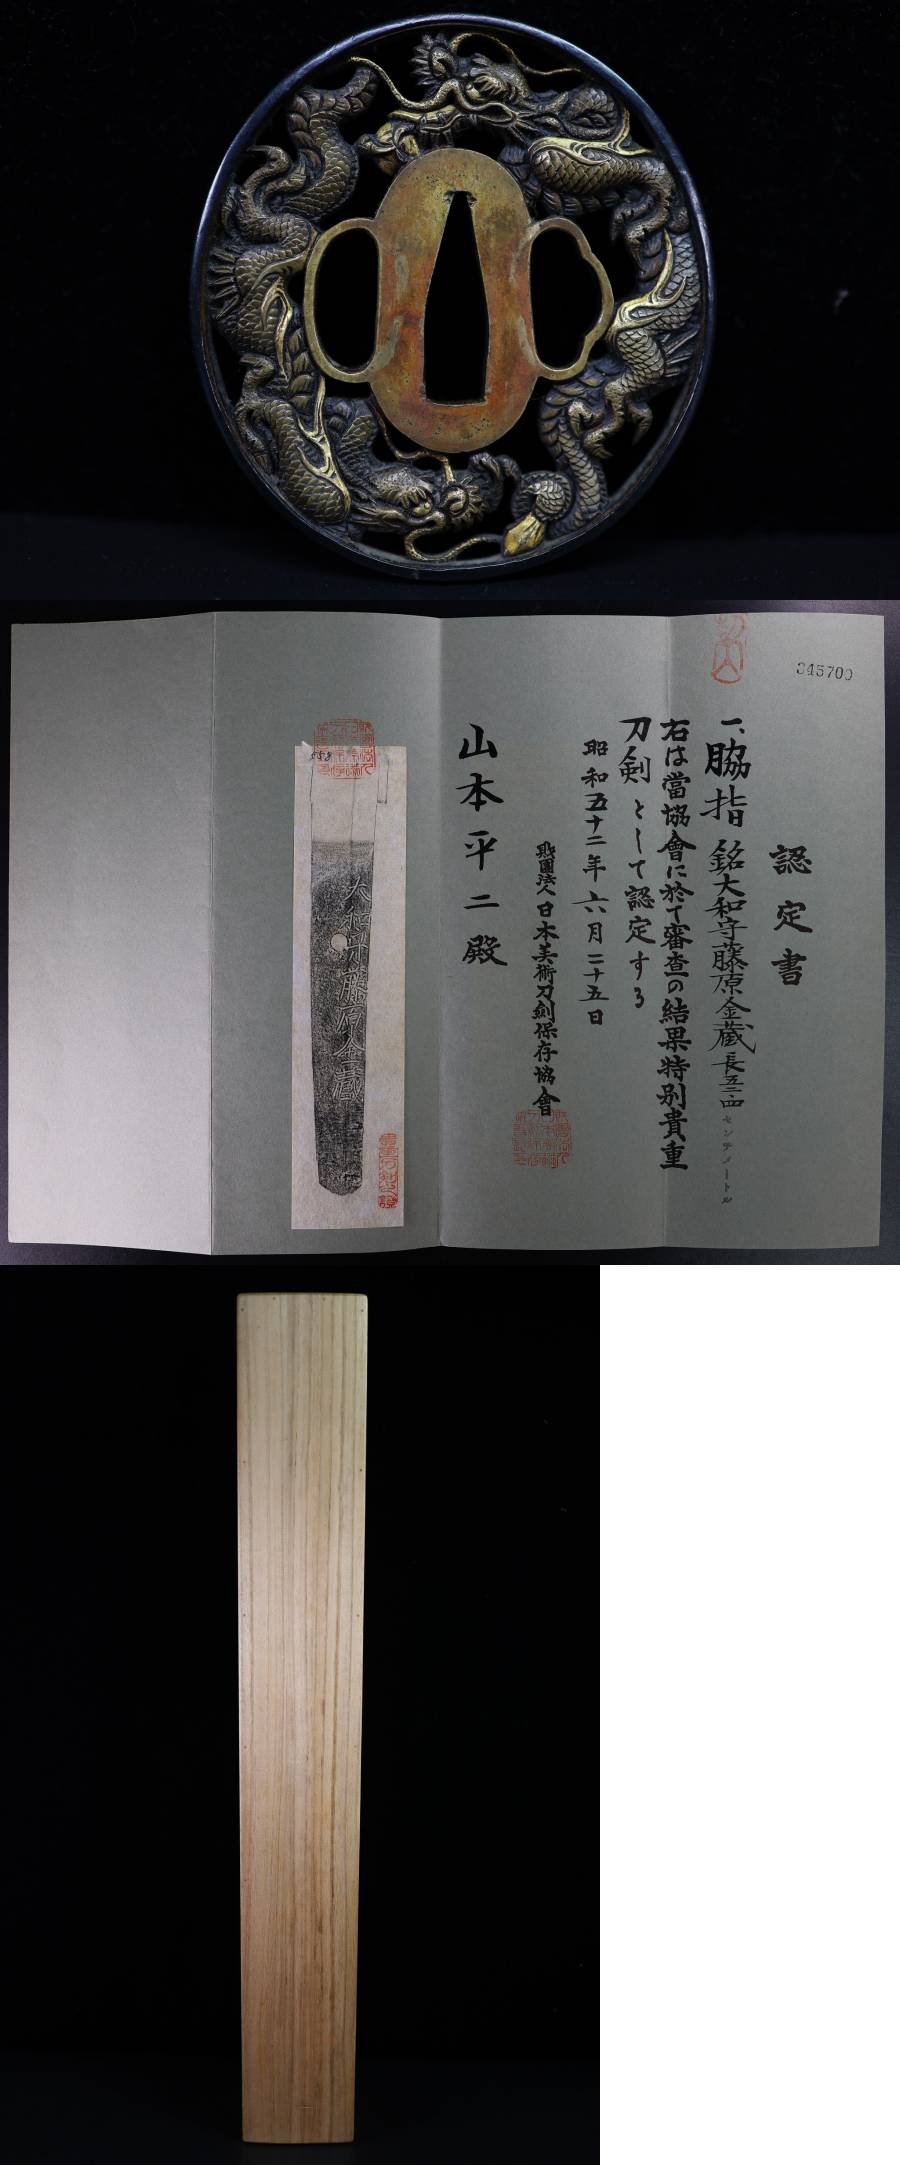 345700
認定書
一、脇指 銘大和守藤原金蔵 長五三・四センチメートル
右は當協會に於て審査の結果特別貴重
刀剣として認定する
昭和五十二年六月二十五日
財團法人日本美術刀劍保存協會
山本平二殿
大和守藤原金蔵